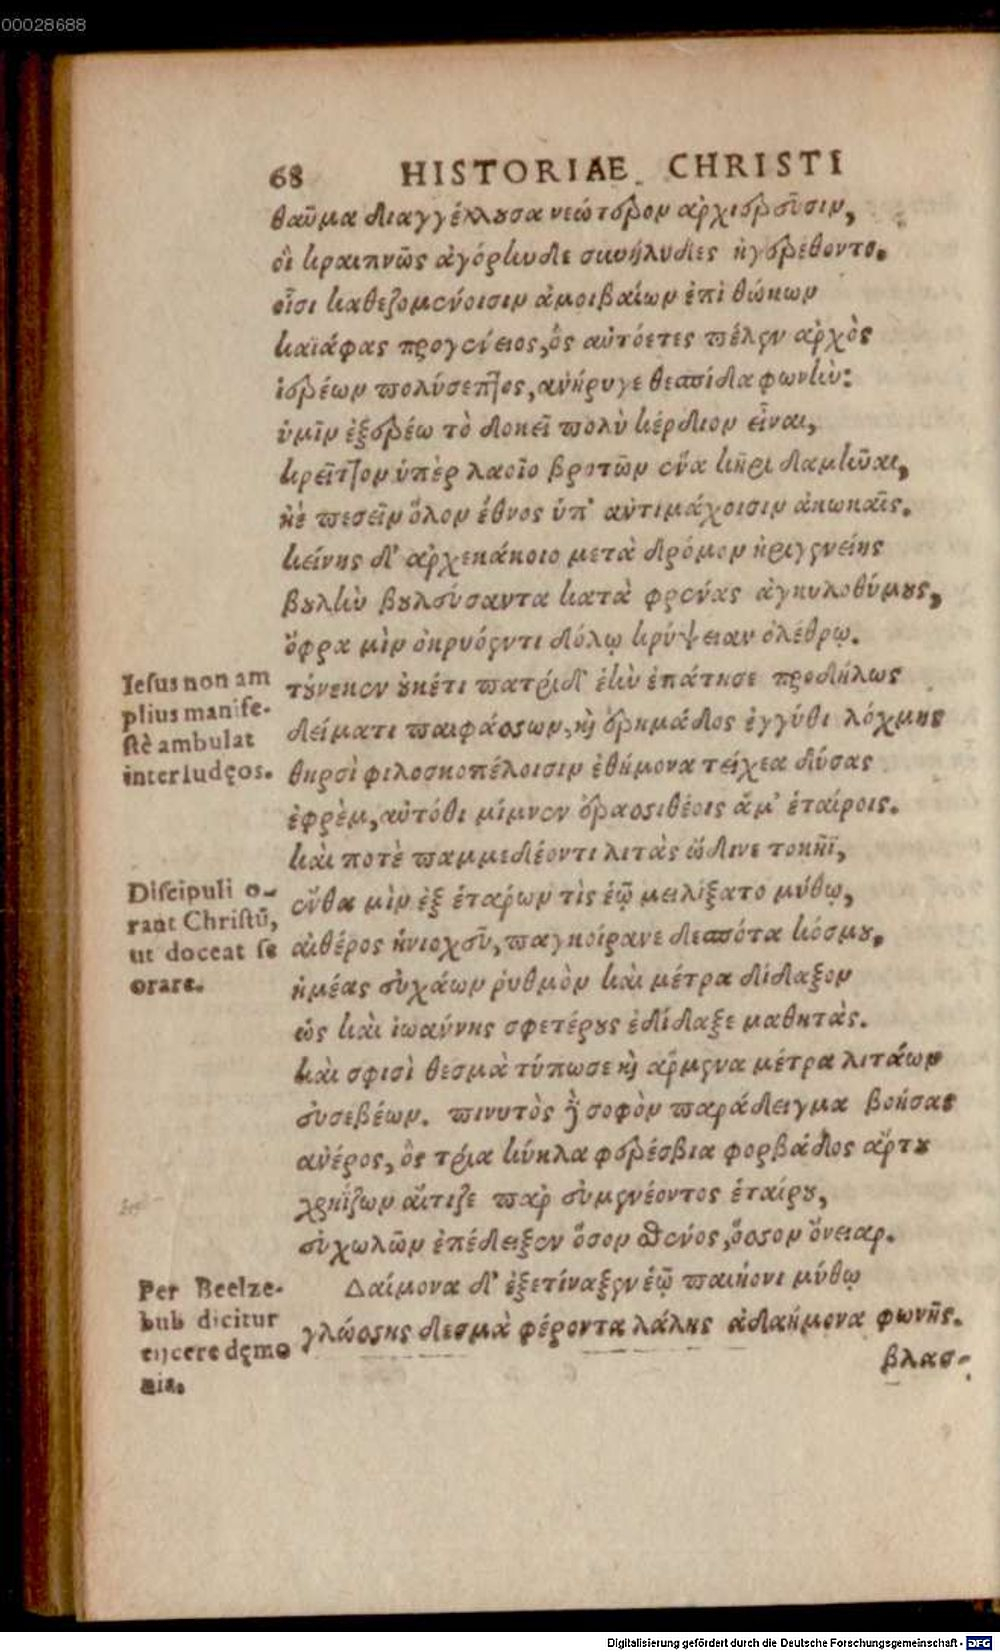 00028688
68 HISTORIAE CHRISTI
θαῦμα διαγγέλλουσα νεώτερον ἀρχιερεῦσιν,
οἳ κραιπνῶς ἀγόρηνδε συνήλυδες ἠγερέθοντο.
οἷσι καθεζομένοισιν ἀμοιβαίων ἐπὶ θώκων
καϊάφας προγένειος, ὃς αὐτόετες πέλεν ἀρχὸς
ἱερέων πολύσεπτος, ἀνήρυγε θεσπίδα φωνήν:
ὑμῖν ἐξερέω τὸ δοκεῖ πολὺ κέρδιον εἶναι,
κρεῖττον ὑπὲρ λαοῖο βροτῶν ἕνα κῆρι δαμῆναι,
ἠὲ πεσεῖν ὅλον ἔθνος ὑπ' ἀντιμάχοισιν ἀκωκαῖς.
κείνης δ' ἀρχεκάκοιο μετὰ δρόμον ἠριγενείης
βουλὴν βουλεύσαντα κατὰ φρένας ἀγκυλοθύμους,
ὄφρα μὶν ὀκρυόεντι δόλῳ κρύψειαν ὀλέθρῳ.
Iesus non am
plius manife-
stè ambulat
inter Iudęos.
τούνεκεν οὐκέτι πατρίδ' ἑὴν ἐπάτησε προδήλως
δείματι παιφάσσων, καὶ ἐρημάδος ἐγγύθι λόχμης
θηρσὶ φιλοσκοπέλοισιν ἐθήμονα τείχεα δύσας
ἐφρὲμ, αὐτόθι μίμνεν ἐρασσιθέοις ἅμ' ἑταίροις.
καὶ ποτὲ παμμεδέοντι λιτὰς ὤδινε τοκῆϊ,
Discipuli o-
rant Christū,
ut doceat se
orare.
ἔνθα μὶν ἐξ ἑτάρων τὶς ἑῷ μειλίξατο μύθῳ,
αἰθέρος ἡνιοχεῦ, παγκοίρανε δεσπότα κόσμου,
ἡμέας εὐχάων ῥυθμὸν καὶ μέτρα δίδαξον
ὡς καὶ ἰωάννης σφετέρους ἐδίδαξε μαθητὰς.
καὶ σφισὶ θεσμὰ τύπωσε καὶ ἄρμενα μέτρα λιτάων
εὐσεβέων. πινυτὸς δὲ σοφὸν παράδειγμα βοήσας
ἀνέρος, ὃς τρία κύκλα φερέσβια φορβάδος ἄρτου
χρηΐζων αἴτιζε παρ' εὐμενέοντος ἑταίρου,
εὐχωλῶν ἐπέδειξεν ὅσον σθένος, ὅσσον ὄνειαρ.
Per Beelze-
bub dicitur
eijcere dęmo
nia.
Δαίμονα δ' ἐξετίναξεν ἑῷ παιήονι μύθῳ
γλώσσης δεσμὰ φέροντα λάλης ἀδαήμονα φωνῆς.
βλασ-
Digitalisierung gefördert durch die Deutsche Forschungsgemeinschaft - DFG